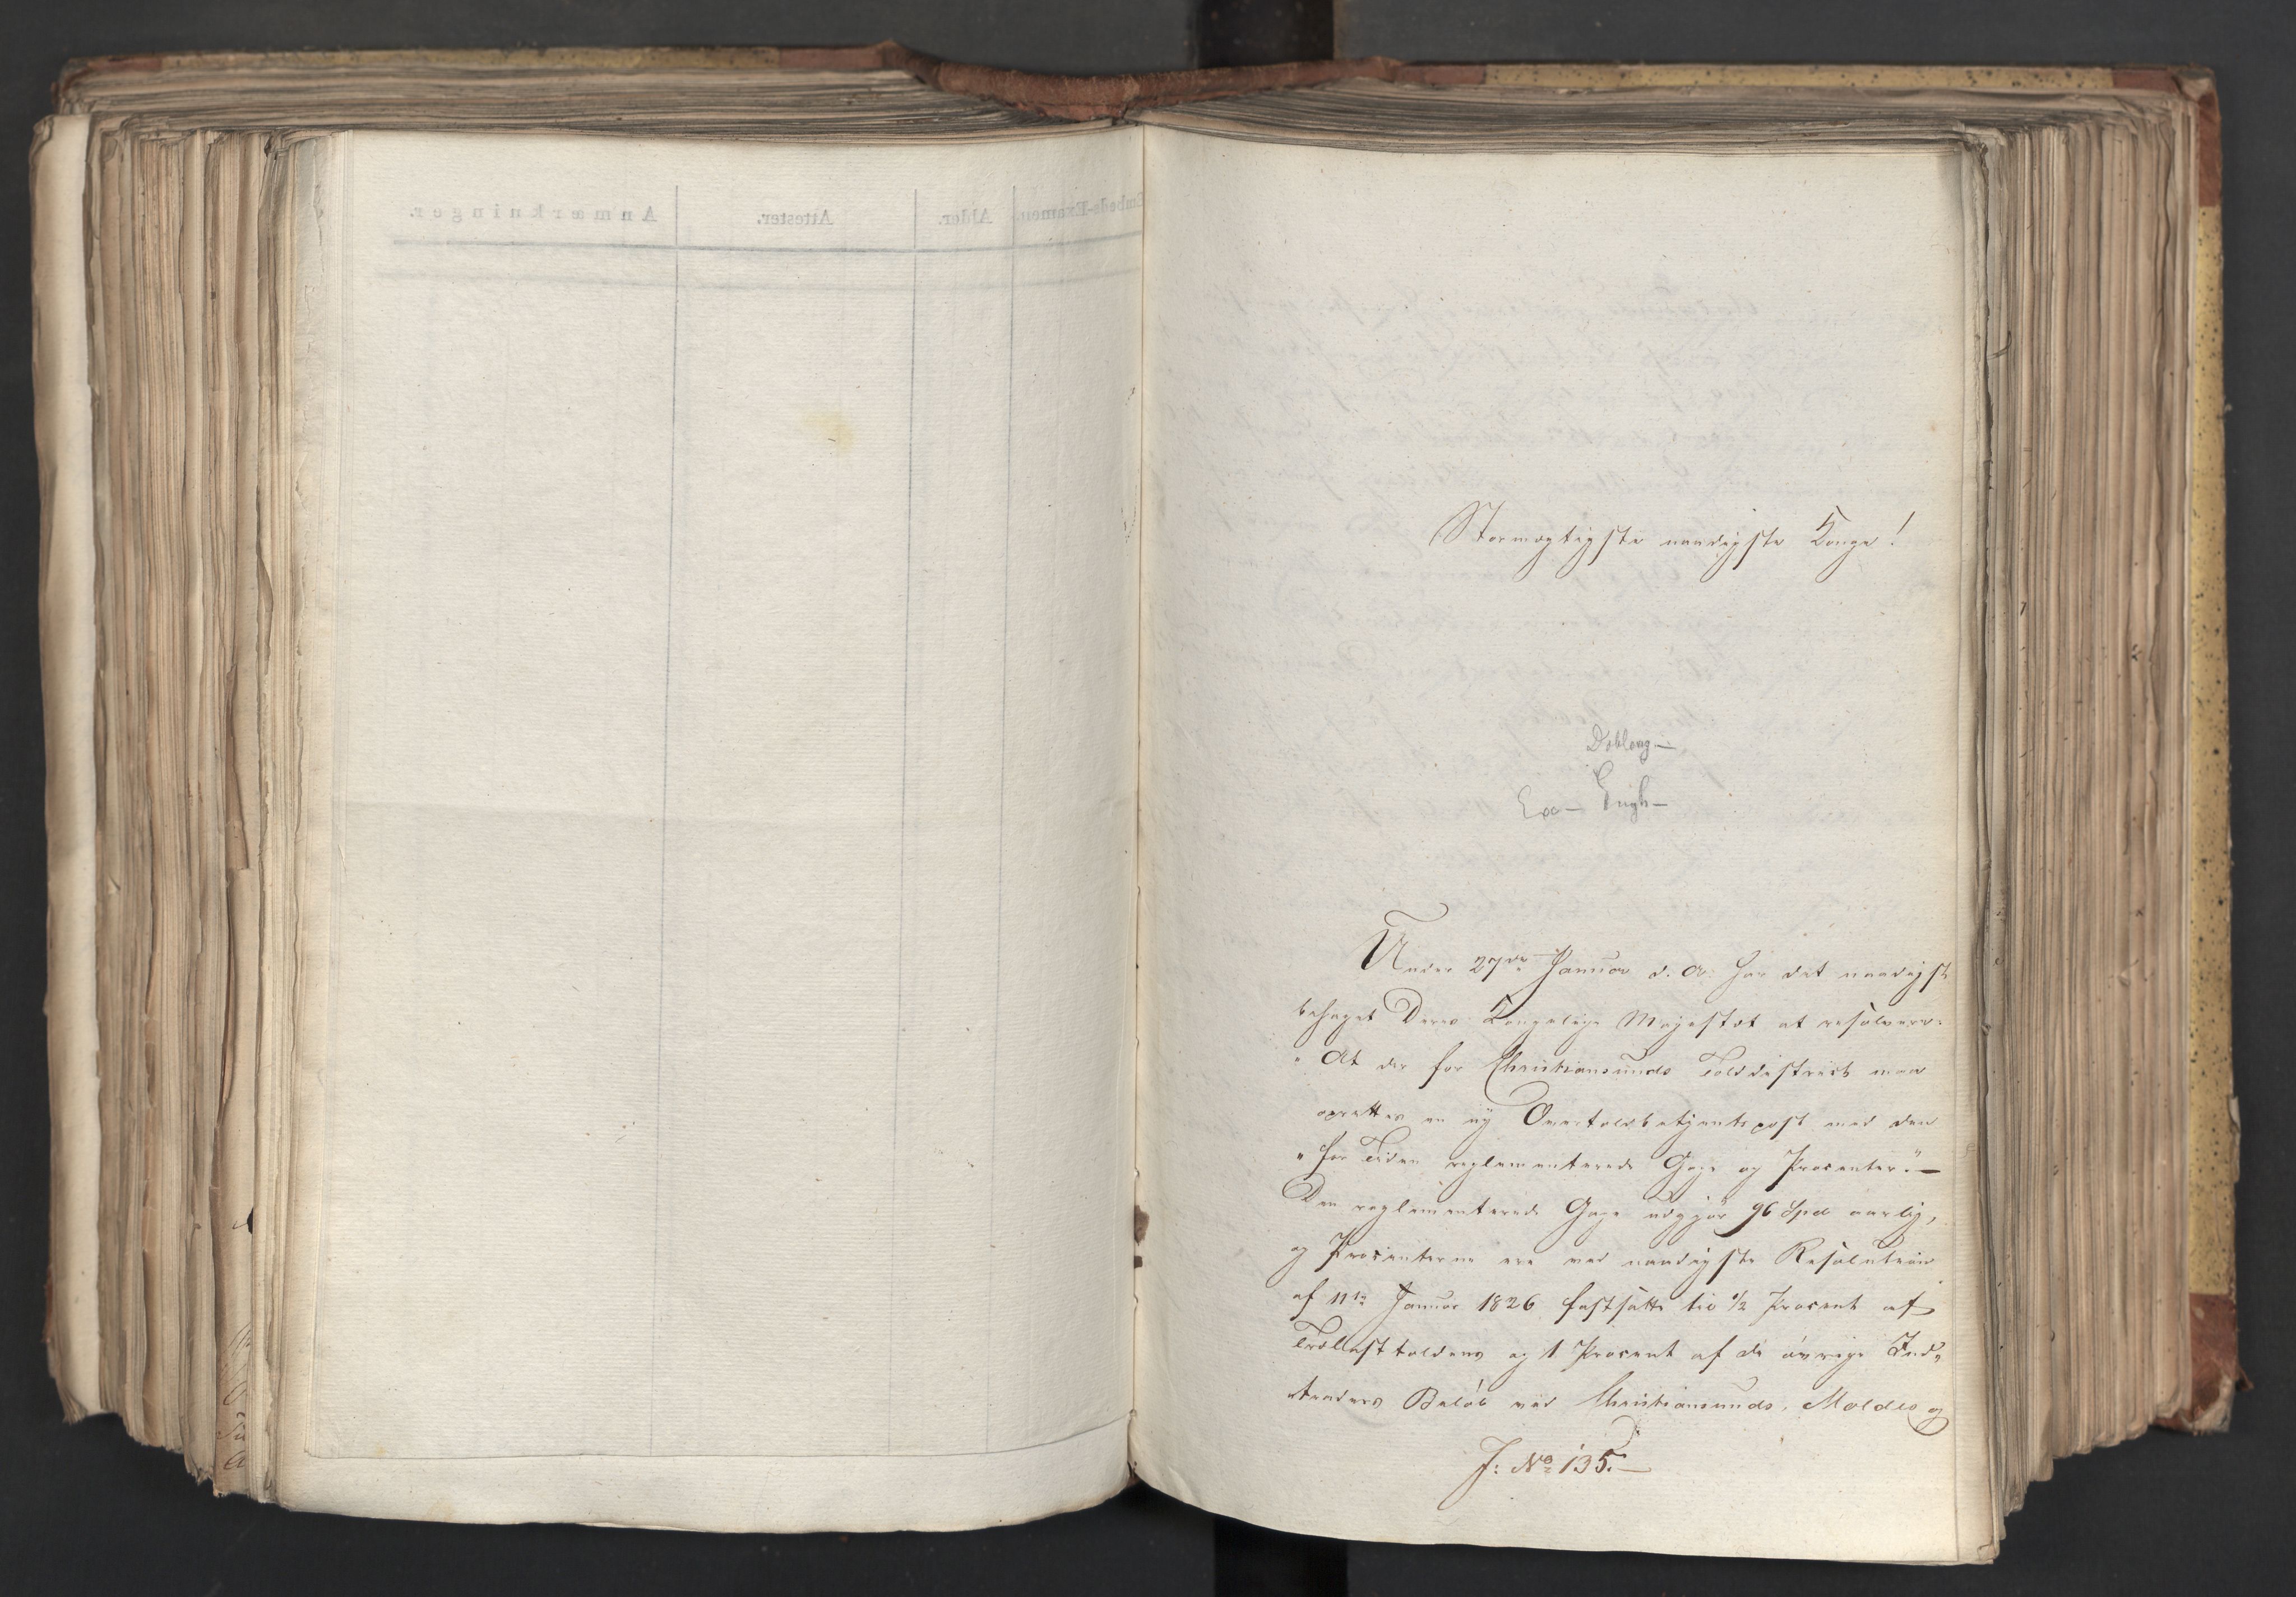 Embeds-Examen. Alder. Attester. Anmærkninger.
Stormægtigste naadigste Konge!
Under 27de Januar d. A: har det naadigst
behaget Deres Kongelige Majestæt at resolvere:
"At der for Christiansunds Tolddistrict maa
oprettes en ny Overtoldbetjentpost med den
"for Tiden reglementerede Gage og Procenter."—
Den reglementerede Gage udgjør 96 Spd aarlig,
og Procenterne ere ved naadigste Resolution
af 11te Januar 1826 fastsatte til ½ Procent af
Trælasttoldens og 1 Procent af de øvrige Ind-
traders Beløb ved Christiansunds, Moldes og
J: No 135.—